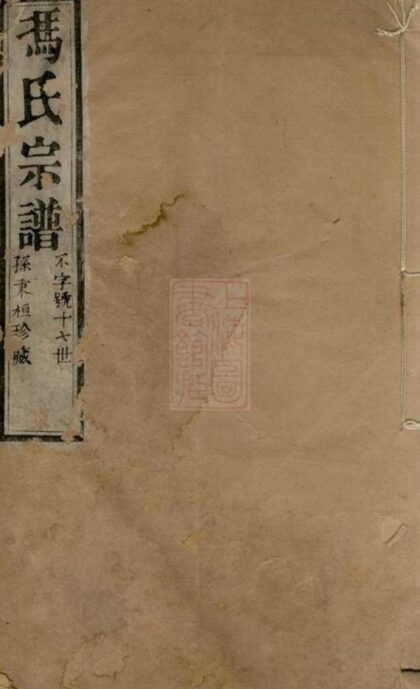 馮氏宗譜
不字號十七世
孫東桓珍藏
上海圖
書館藏